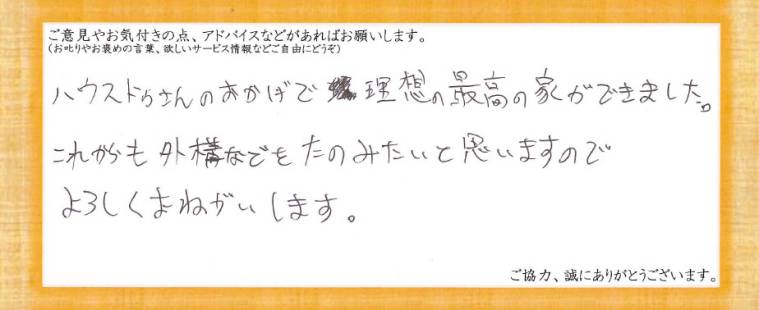 ご意見やお気付きの点、アドバイスなどがあればお願いします。
(お叱りやお褒めの言葉、欲しいサービス情報などご自由にどうぞ)
ハウスドゥさんのおかげで 理想の最高の家ができました。
これからも外構などをたのみたいと思いますので
よろしくおねがいします。
ご協力、誠にありがとうございます。